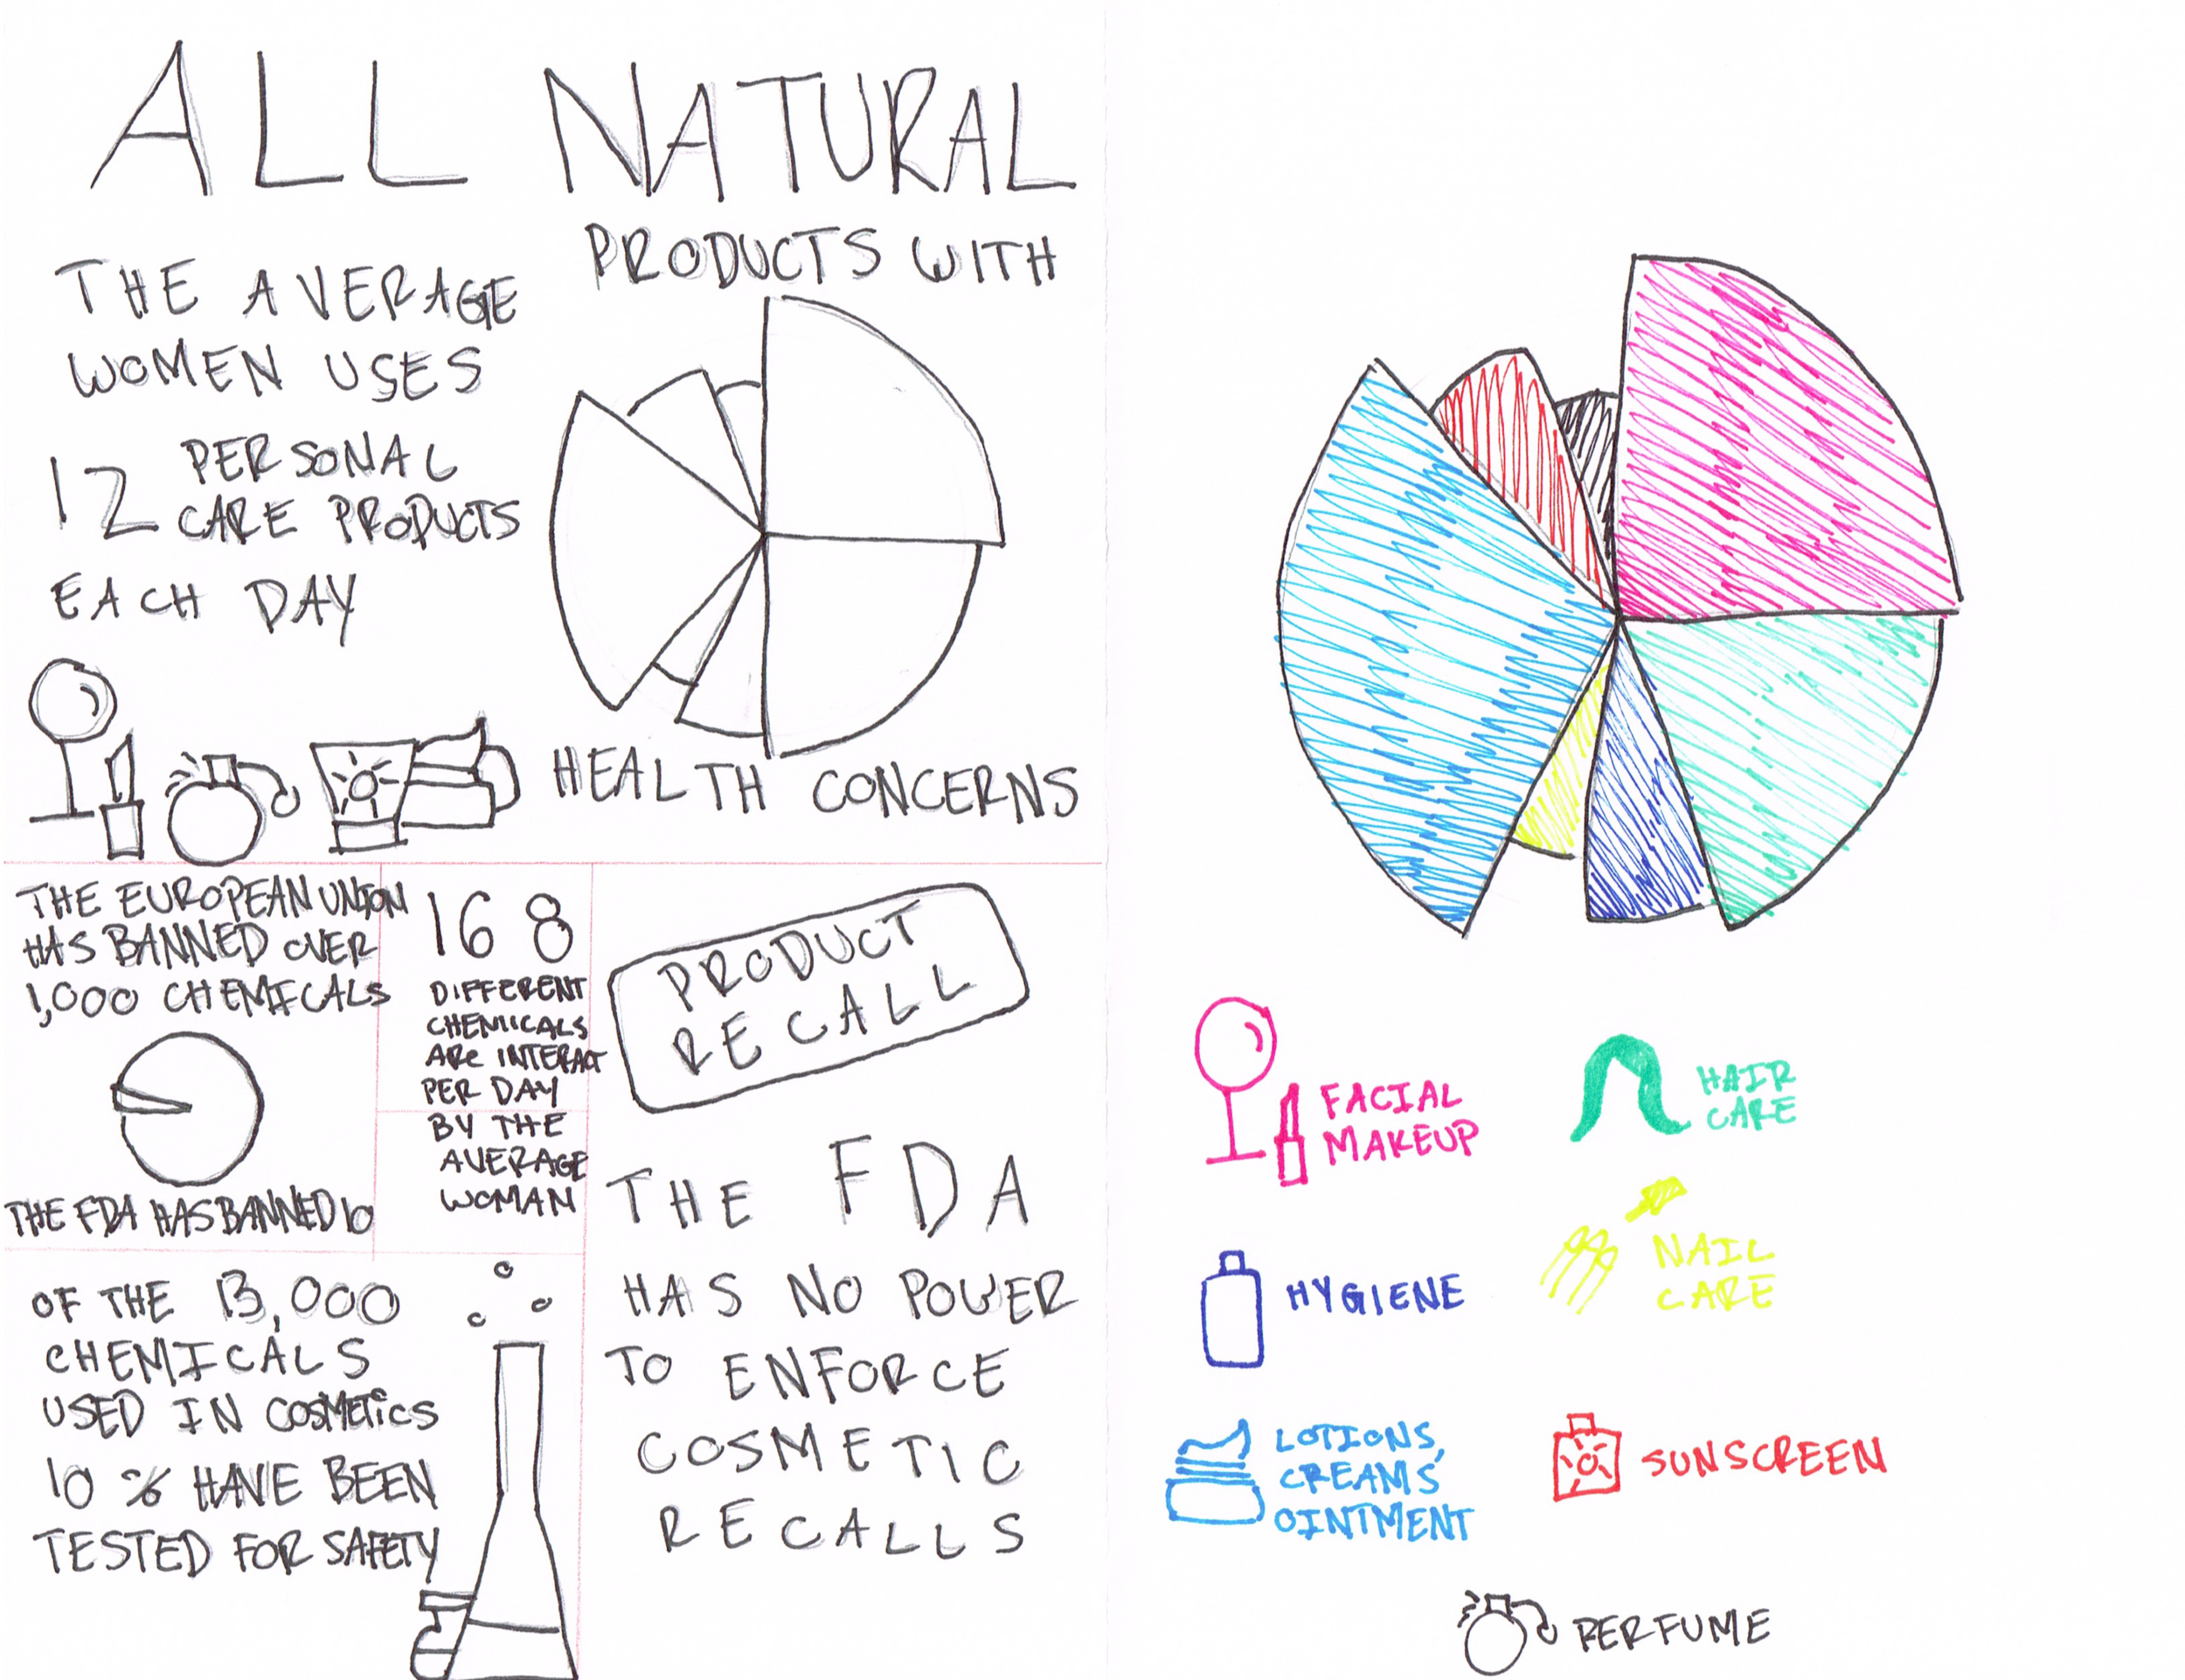 ALL NATURAL
THE AVERAGE
WOMEN USES
12 PERSONAL
CARE PRODUCTS
EACH DAY
PRODUCTS WITH
HEALTH CONCERNS
THE EUROPEAN UNION
HAS BANNED OVER
1,000 CHEMICALS
THE FDA HAS BANNED 10
168
DIFFERENT
CHEMICALS
ARE INTERACT
PER DAY
BY THE
AVERAGE
WOMAN
PRODUCT
RECALL
THE FDA
HAS NO POWER
TO ENFORCE
COSMETIC
RECALLS
OF THE 13,000
CHEMICALS
USED IN COSMETICS
10 % HAVE BEEN
TESTED FOR SAFETY
FACIAL
MAKEUP
HAIR
CARE
HYGIENE
NAIL
CARE
LOTIONS,
CREAMS
OINTMENT
SUNSCREEN
PERFUME